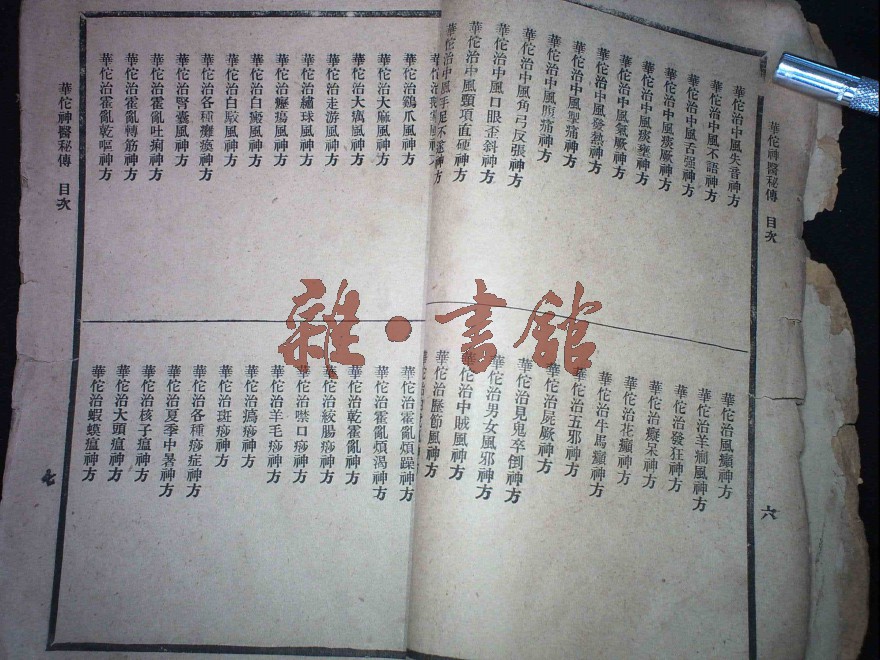 華佗神醫秘傳 目次
六
華佗治中風失音神方
華佗治中風不語神方
華佗治中風舌强神方
華佗治中風痰厥神方
華佗治中風痰壅神方
華佗治中風氣厥神方
華佗治中風發熱神方
華佗治中風掣痛神方
華佗治中風腹痛神方
華佗治中風角弓反張神方
華佗治中風口眼歪斜神方
華佗治中風頸項直硬神方
華佗治中風手足不遂神方
華佗治風癲神方
華佗治羊癇風神方
華佗治發狂神方
華佗治癡呆神方
華佗治花癲神方
華佗治牛馬癲神方
華佗治五邪神方
華佗治屍厥神方
華佗治見鬼卒倒神方
華佗治男女風邪神方
華佗治中賊風神方
華佗治歷節風神方
華佗治鷄爪風神方
華佗治大麻風神方
華佗治大癘風神方
華佗治走游風神方
華佗治繡球風神方
華佗治癧瘍風神方
華佗治白癜風神方
華佗治白駁風神方
華佗治各種癱瘓神方
華佗治腎囊風神方
華佗治霍亂吐痢神方
華佗治霍亂轉筋神方
華佗治霍亂乾嘔神方
華佗治霍亂煩躁神方
華佗治霍亂煩渴神方
華佗治乾霍亂神方
華佗治絞腸痧神方
華佗治噤口痧神方
華佗治羊毛痧神方
華佗治痧神方
華佗治斑痧神方
華佗治各種痧症神方
華佗治夏季中暑神方
華佗治核子瘟神方
華佗治大頭瘟神方
華佗治蝦蟆瘟神方
華佗神醫秘傳 目次
七
雜·書館